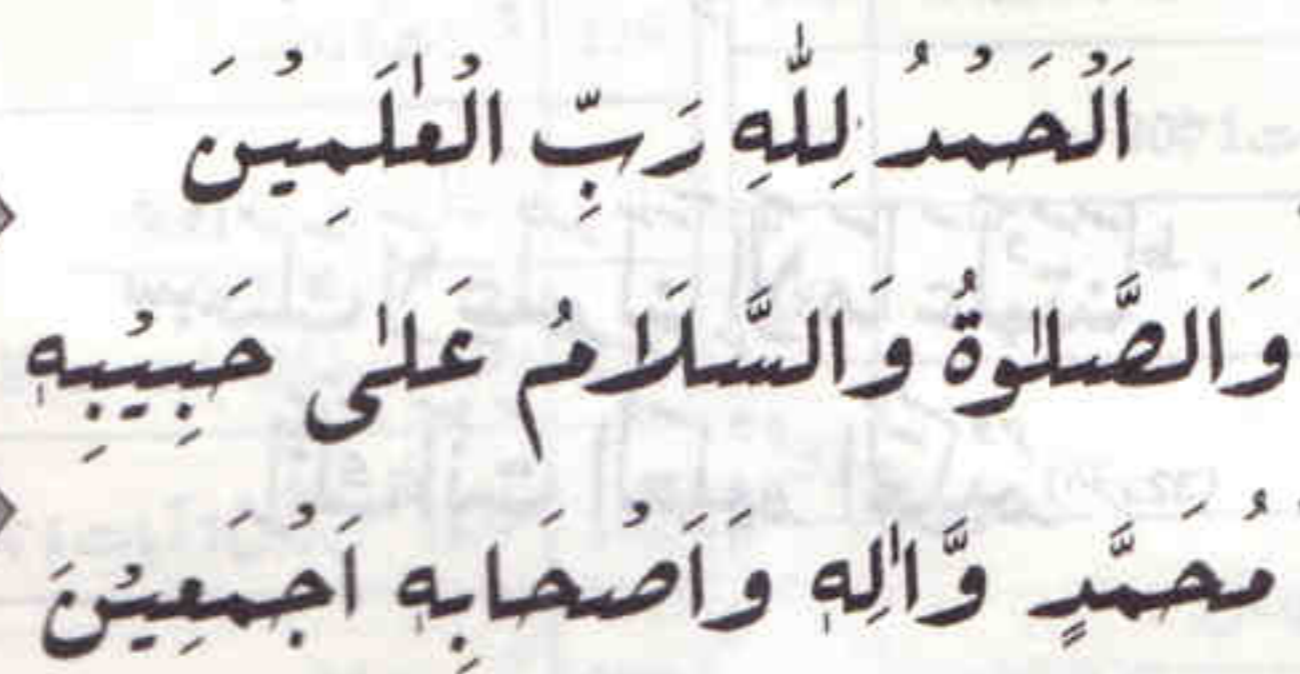 اَلْحَمْدُ لِلّٰهِ رَبِّ الْعٰلَمِیْنَ
وَالصَّلٰوةُ وَالسَّلَامُ عَلٰی حَبِیْبِهٖ
مُحَمَّدٍ وَّاٰلِهٖ وَاَصْحَابِهٖ اَجْمَعِیْنَ